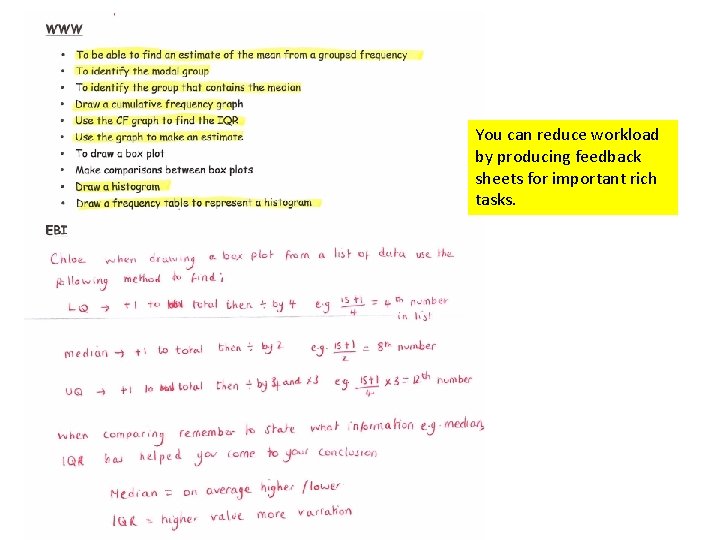 WWW
• To be able to find an estimate of the mean from a grouped frequency
• To identify the modal group
• To identify the group that contains the median
• Draw a cumulative frequency graph
• Use the CF graph to find the IQR
• Use the graph to make an estimate
• To draw a box plot
• Make comparisons between box plots
• Draw a histogram
• Draw a frequency table to represent a histogram
You can reduce workload
by producing feedback
sheets for important rich
tasks.
EBI
Chloe when drawing a box plot from a list of data use the
following method to find;
LQ → +1 to total then ÷ by 4 e.g 15+1/4 = 4th number
in list
median → +1 to total then ÷ by 2 e.g. 15+1/2 = 8th number
UQ → +1 to total then ÷ by 4 and x3 eg 15+1/4 x3 = 12th number
when comparing remember to state what information e.g. median,
IQR has helped you come to your conclusion
Median = on average higher /lower
IQR = higher value more variation